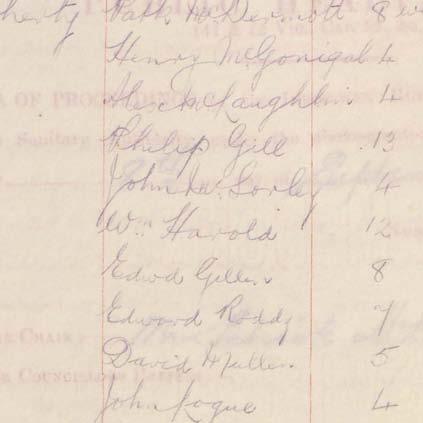 herty Patk McDermott 8 w
Henry McGonigal 4
Alex McLaughlin 4
Philip Gill 13
John McSorley 4
Wm Harold 12
Edwd Gillen 8
Edward Roddy 7
David Mullen 5
John Logue 4